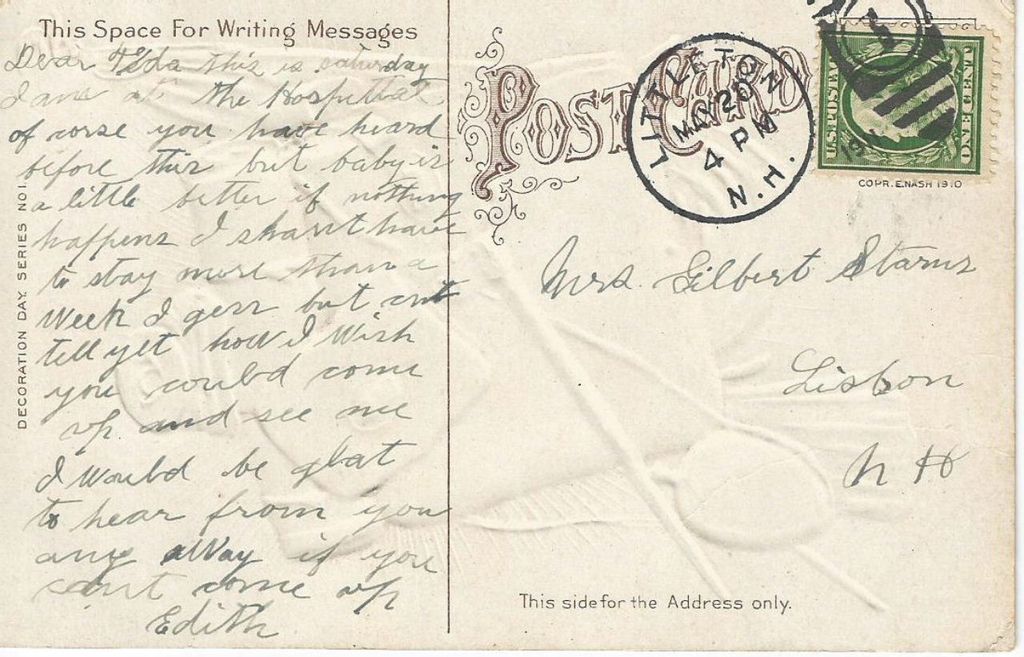 This Space For Writing Messages
Dear Ilda this is saturday
I am at the Hospittal
of corse you have heard
before this but baby is
a little better if nothing
happens I shan't have
to stay more than a
Week I gess but cant
tell yet how I Wish
you could come
up and see me
I Would be glat
to hear from you
any Way if you
cant come up
Edith
DECORATION DAY SERIES NO1.
POST CARD
LITTLETON
MAY 20
4 PM
N.H.
U.S. POSTAGE
ONE CENT
COPR. E. NASH 1910
Mrs. Gilbert Starns
Lisbon
N H
This side for the Address only.